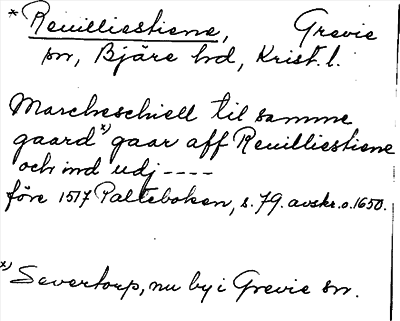 *Reuilliestiene, Grevie
sn, Bjäre hd, Krist. l.
Marcheschiell til samme
gaard x) gaar aff Reuilliestiene
och ind udj ----
före 1517 Palteboken, s. 79. avskr. o. 1650.
x) Severtorp, nu by i Grevie sn.